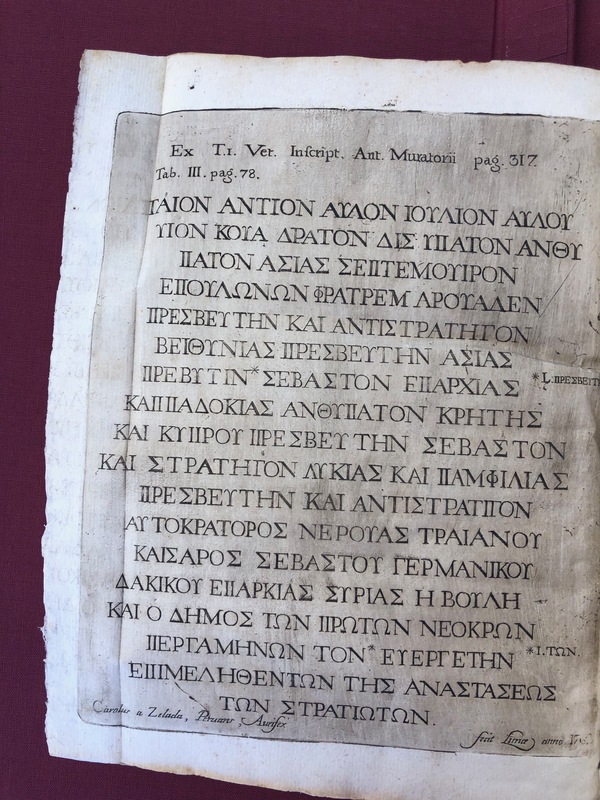 Ex T.I. Vet. Inscript. Ant. Muratorii pag. 317.
Tab. III. pag. 78.
ΓΑΙΟΝ ΑΝΤΙΟΝ ΑΥΛΟΝ ΙΟΥΛΙΟΝ ΑΥΛΟΥ
ΥΙΟΝ ΚΟΥΑ ΔΡΑΤΟΝ ΔΙΣ ΥΠΑΤΟΝ ΑΝΘΥ
ΠΑΤΟΝ ΑΣΙΑΣ ΣΕΠΤΕΜΟΥΙΡΟΝ
ΕΠΟΥΛΩΝΩΝ ΦΡΑΤΡΕΜ ΑΡΟΥΑΛΕΝ
ΠΡΕΣΒΕΥΤΗΝ ΚΑΙ ΑΝΤΙΣΤΡΑΤΗΓΟΝ
ΒΕΙΘΥΝΙΑΣ ΠΡΕΣΒΕΥΤΗΝ ΑΣΙΑΣ
ΠΡΕΒΥΤΙΝ* ΣΕΒΑΣΤΟΝ ΕΠΑΡΧΙΑΣ *L: ΠΡΕΣΒΕΥΤ
ΚΑΠΠΑΔΟΚΙΑΣ ΑΝΘΥΠΑΤΟΝ ΚΡΗΤΗΣ
ΚΑΙ ΚΥΠΡΟΥ ΠΡΕΣΒΕΥΤΗΝ ΣΕΒΑΣΤΟΝ
ΚΑΙ ΣΤΡΑΤΗΓΟΝ ΛΥΚΙΑΣ ΚΑΙ ΠΑΜΦΙΛΙΑΣ
ΠΡΕΣΒΕΥΤΗΝ ΚΑΙ ΑΝΤΙΣΤΡΑΤΙΓΟΝ
ΑΥΤΟΚΡΑΤΟΡΟΣ ΝΕΡΟΥΑΣ ΤΡΑΙΑΝΟΥ
ΚΑΙΣΑΡΟΣ ΣΕΒΑΣΤΟΥ ΓΕΡΜΑΝΙΚΟΥ
ΔΑΚΙΚΟΥ ΕΠΑΡΚΙΑΣ ΣΥΡΙΑΣ Η ΒΟΥΛΗ
ΚΑΙ Ο ΔΗΜΟΣ ΤΩΝ ΠΡΩΤΩΝ ΝΕΟΚΡΩΝ
ΠΕΡΓΑΜΗΝΩΝ ΤΟΝ* ΕΥΕΡΓΕΤΗΝ *I. ΤΩΝ.
ΕΠΙΜΕΛΗΘΕΝΤΩΝ ΤΗΣ ΑΝΑΣΤΑΣΕΩΣ
ΤΩΝ ΣΤΡΑΤΙΩΤΩΝ.
Carolus a Zelada, Peruanus Aurifex fecit Limæ anno